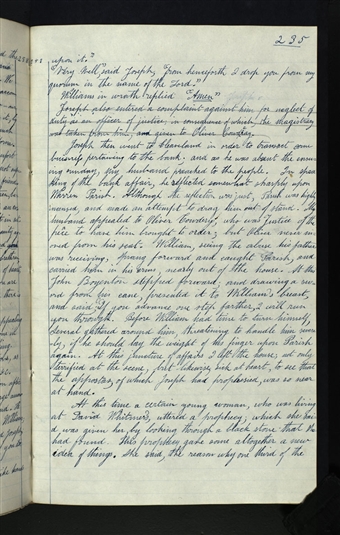 235
upon it."
"Very Well" said Joseph, "from henceforth I drop you from my
quorum in the name of the Lord."
William in wrath replied "Amen"
Joseph also entered a complaint against him, for neglect of
duty as an officer of justice, in consequence of which, the magistracy
was taken from him, and given to Oliver Cowdray.
Joseph then went to Cleaveland in order to transact some
business pertaining to the bank; and as he was about the
ing sunday, my husband preached to the people. In spea-
king of the bank affair, he reflected somewhat sharply upon
Warren Parish. Although the reflection was just, Parish was highly
and made an attempt to drag him out of stand. My
husband appealed to Oliver Cowdery, who was justice of the
peace to have him brought to order; but Oliver never mo-
oved from his seat. William, seeing the abuse his father
was receiving, sprang forward and caught Parish, and
carried him in his arms, nearly out of the house. At this
John Boyenton stepped forward; and drawing a sw-
ord from his cane, presented it to William's breast,
and said "if you advance one step farther, I will run
you through. Before William had time to turn himself,
several gathered around him, threatening to handle him seve-
ly, if he should lay the weight of the finger upon Parish
again. At this juncture of affairs I left the house, not only
terrified at the scene, but likewise sick at heart, to see that
the apostasy, of which Joseph had prophesied, was so near
at hand.
At this time a certain young woman, who was living
at David Whitmer's, uttered a prophecy, which she sai-
d, was given her, by looking through a black stone that she
had found. This prophecy gave some altogether a new
idea of things. She said, the reason why one third of the